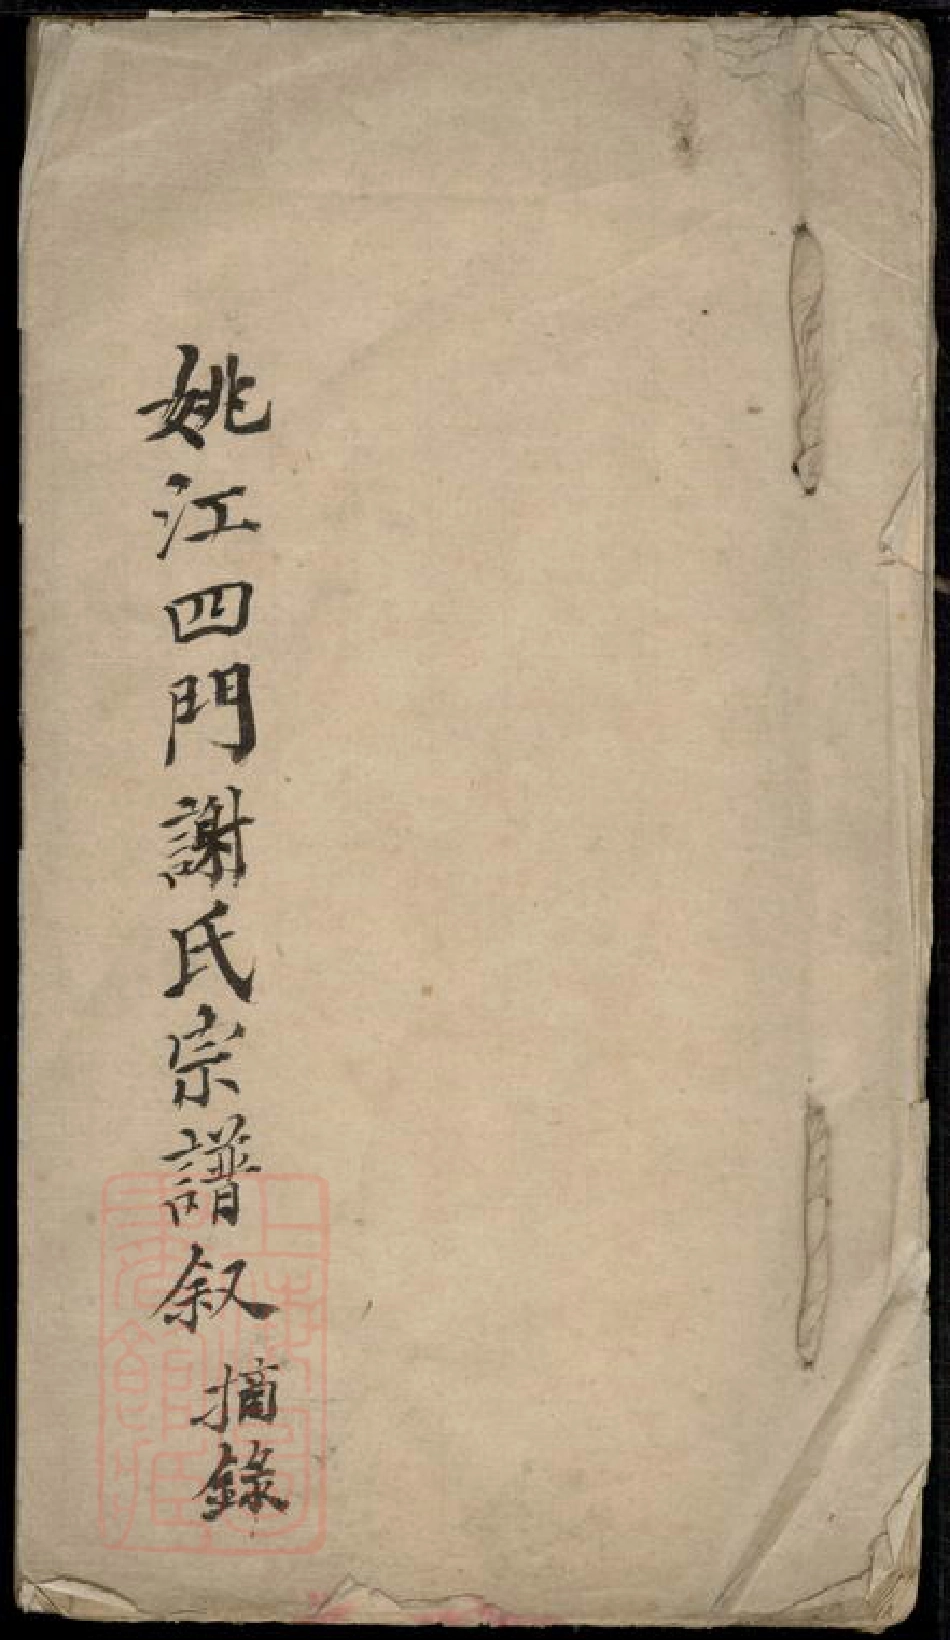 姚江四門謝氏宗譜叙
摘錄